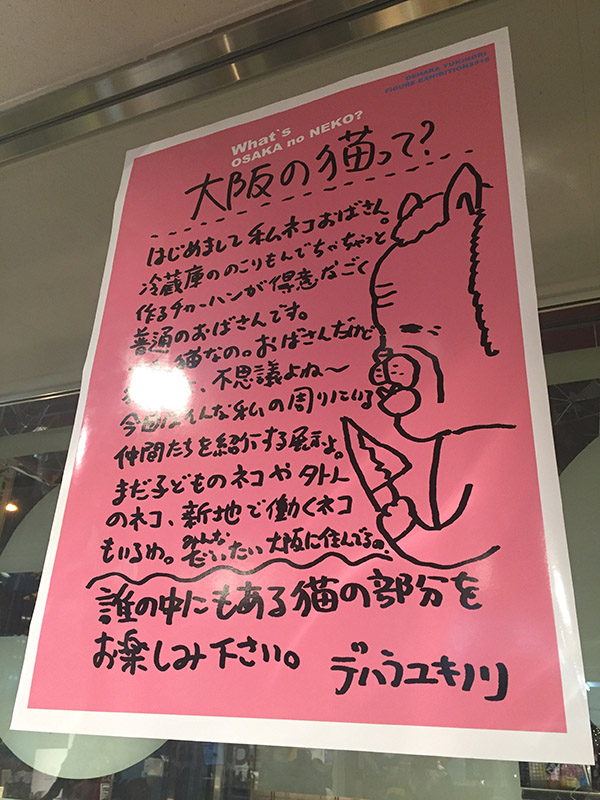 DEHARA YUKINORI
FIGURE EXHIBITION2016
What's
OSAKA no NEKO?
大阪の猫って?
はじめまして私ネコおばさん。
冷蔵庫ののこりもんでちゃちゃっと
作るチャーハンが得意なごく
普通のおばさんです。
猫なの。おばさんだけど
、不思議よね〜
今回はそんな私の周りにいる
仲間たちを紹介する展示よ。
まだ子どものネコや外人
のネコ、新地で働くネコ
もいるわ。みんなだいたい大阪に住んでるの。
誰の中にもある猫の部分を
お楽しみ下さい。
デハラユキノリ